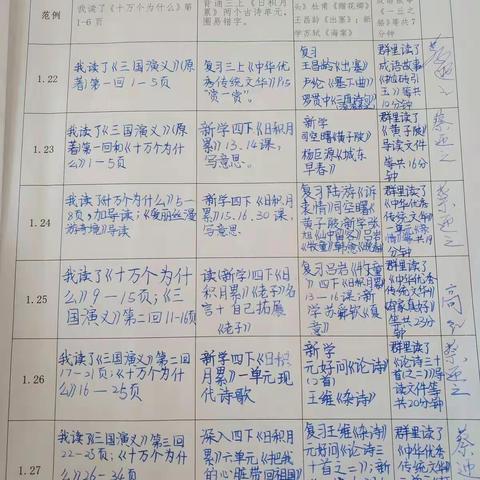 范例
我读了《十万个为什么》第
1-6页
背诵三上《日积月
累》两个古诗单元,
圈易错字。
头》杜甫《赠花卿》
王昌龄《出塞》;新
学苏轼《海棠》
等共7
分钟
1.22
我读了《三国演义》(原
著)第一回1-5页
复习三上《中华优
秀传统文化》P15
“赏一赏”。
复习
王昌龄《出塞》
卢纶《塞下曲》
群里读了
成语故事
《抛砖引
玉》等共
10分钟
1.23
我读了《三国演义》(原
著)第一回和《十万个为什
么》1-5页
新学四下《日积月
累》13.14课,
写意思。
新学
司空曙《黄子陂》
杨巨源《城东
早春》
群里读了
《黄子陂》
导读文件
等共16分
钟
1.24
我读了《十万个为什么》5-
8页,加导读;《爱丽丝漫
游奇境》导读
新学四下《日积月
累》15.16.30课,
写意思
复习陆游《诉
衷情》司空曙《
黄子陂》新学张
群里读了
《中华优秀
传统文化》
1.25
我读了《十万个为什
么》9-15页;《三
国演义》第二回11-16页
读(新学)四下《日
积月累》《老子》名
言+自己拓展
《老子》
复习吕岩《牧童》
四下《日积月累》
13-16课;新
学苏轼《
群里读了
《中华优秀
传统文化》
等共23分
钟
1.26
我读了《三国演义》第二回
17-21页;《十万个为什
么》16-25页
新学四下《日积
月累》一单元现
代诗歌
新学
元好问《论诗》
(2首)
王维《杂诗》
群里读了
《论诗三十
首之二》导
读文件等
共20分钟
1.27
我读了《三国演义》第三回
22-25页;《十万个为什
么》26-34页
深入四下《日积月
累》六单元《把我
的心脏带回祖国》
复习王维《杂诗》
元好问《论诗三
十首之二》;新
群里读了
《中华优秀
传统文化》